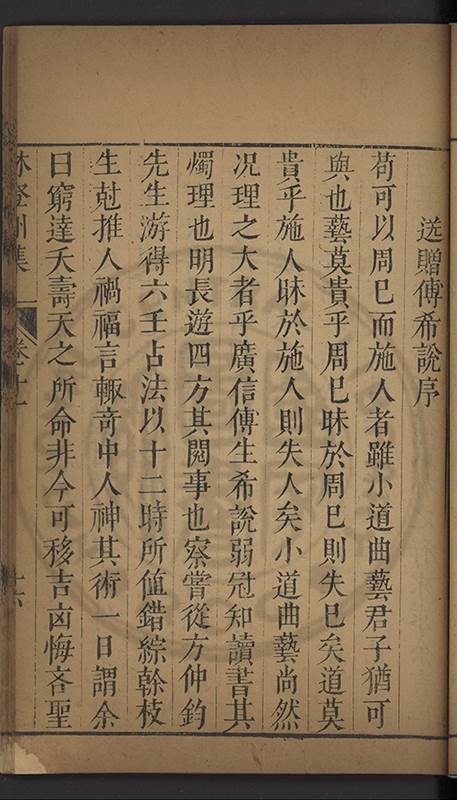 送贈傅希說序
苟可以周已而施人者雖小道曲藝君子猶可
與也藝莫貴乎周已昧於周已則失已矣道莫
貴乎施人昧於施人則失人矣小道曲藝尚然
况理之大者乎廣信傅生希說弱冠知讀書其
燭理也明長遊四方其閱事也察嘗從方仲鈞
先生游得六壬占法以十二時所值錯綜榦枝
生尅推人禍福言輙竒中人神其術一日謂余
曰窮達夭壽天之所命非今可移吉凶悔吝聖
林登州集 卷十一 十六